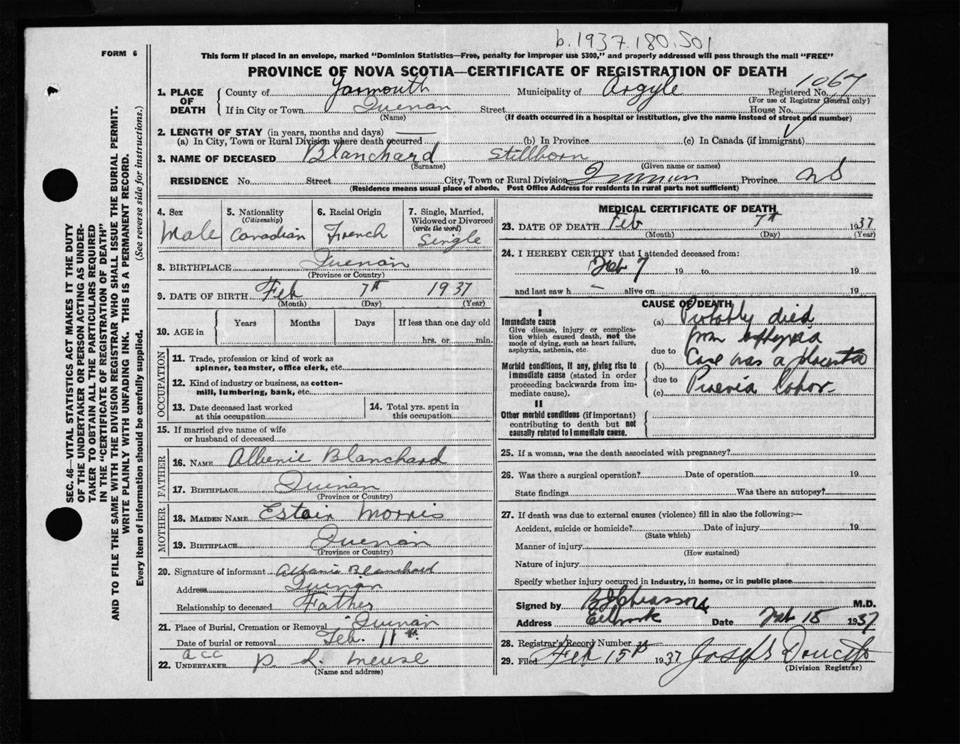 b.1937.180.501
FORM 6
This form if placed in an envelope, marked "Dominion Statistics—Free, penalty for improper use $300," and properly addressed will pass through the mail "FREE"
PROVINCE OF NOVA SCOTIA—CERTIFICATE OF REGISTRATION OF DEATH
1. PLACE OF DEATH
County of Yarmouth Municipality of Argyle Registered No. 1067
(For use of Registrar General only)
If in City or Town Quenan Street House No.
(Name) (If death occurred in a hospital or institution, give the name instead of street and number)
2. LENGTH OF STAY (in years, months and days)
(a) In City, Town or Rural Division where death occurred (b) In Province (c) In Canada (if immigrant)
3. NAME OF DECEASED Blanchard Stillborn
(Surname) (Given name or names)
RESIDENCE No. Street City, Town or Rural Division Quinan Province NS
(Residence means usual place of abode. Post Office Address for residents in rural parts not sufficient)
4. Sex Male
5. Nationality (Citizenship) Canadian
6. Racial Origin French
7. Single, Married, Widowed or Divorced (write the word) Single
8. BIRTHPLACE Quenan
(Province or Country)
9. DATE OF BIRTH Feb 7th 1937
(Month) (Day) (Year)
10. AGE in Years Months Days If less than one day old
hrs. or min.
OCCUPATION
11. Trade, profession or kind of work as spinner, teamster, office clerk, etc.
12. Kind of industry or business, as cotton-mill, lumbering, bank, etc.
13. Date deceased last worked at this occupation
14. Total yrs. spent in this occupation
15. If married give name of wife or husband of deceased
FATHER
16. NAME Albenie Blanchard
17. BIRTHPLACE Quinan
(Province or Country)
MOTHER
18. MAIDEN NAME Morris
19. BIRTHPLACE Quenan
(Province or Country)
20. Signature of informant Albanie Blanchard
Address Quinan
Relationship to deceased Father
21. Place of Burial, Cremation or Removal Quinan
Date of burial or removal Feb. 11th
acc
22. UNDERTAKER P. L. Meuse
(Name and address)
MEDICAL CERTIFICATE OF DEATH
23. DATE OF DEATH Feb 7th 1937
(Month) (Day) (Year)
24. I HEREBY CERTIFY that I attended deceased from:
Feb 7 19 to 19
and last saw h – alive on 19
CAUSE OF DEATH
I
Immediate cause
Give disease, injury or complication which caused death, not the mode of dying, such as heart failure, asphyxia, asthenia, etc.
Morbid conditions, if any, giving rise to immediate cause (stated in order proceeding backwards from immediate cause).
II
Other morbid conditions (if important) contributing to death but not causally related to immediate cause.
(a) Probably died
from asphyxia
due to
(b) Case was a placenta
due to
(c) Praevia labor.
25. If a woman, was the death associated with pregnancy?
26. Was there a surgical operation? Date of operation 19
State findings Was there an autopsy?
27. If death was due to external causes (violence) fill in also the following:—
Accident, suicide or homicide? Date of injury 19
(State which)
Manner of injury
(How sustained)
Nature of injury
Specify whether injury occurred in industry, in home, or in public place
Signed by M.D.
Address Eelbrook Feb 15 1937
28. Registrar's Record Number
29. Filed Feb 15th 1937 Joseph Doucet
(Division Registrar)
SEC. 46—VITAL STATISTICS ACT MAKES IT THE DUTY
OF THE UNDERTAKER OR PERSON ACTING AS UNDER-
TAKER TO OBTAIN ALL THE PARTICULARS REQUIRED
IN THE "CERTIFICATE OF REGISTRATION OF DEATH"
AND TO FILE THE SAME WITH THE DIVISION REGISTRAR WHO SHALL ISSUE THE BURIAL PERMIT.
WRITE PLAINLY WITH UNFADING INK. THIS IS A PERMANENT RECORD.
Every item of information should be carefully supplied. (See reverse side for instructions.)